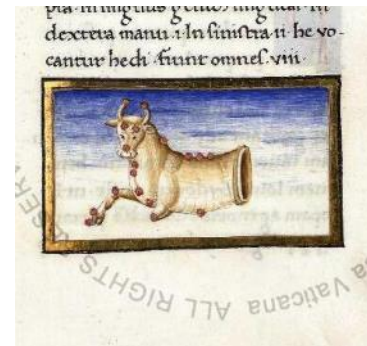 pia. In
dextera manu .i. In sinistra .ii. he vo-
cantur hedi. Fiunt omnes. viii.
ca Vaticana ALL RIGHTS RESER